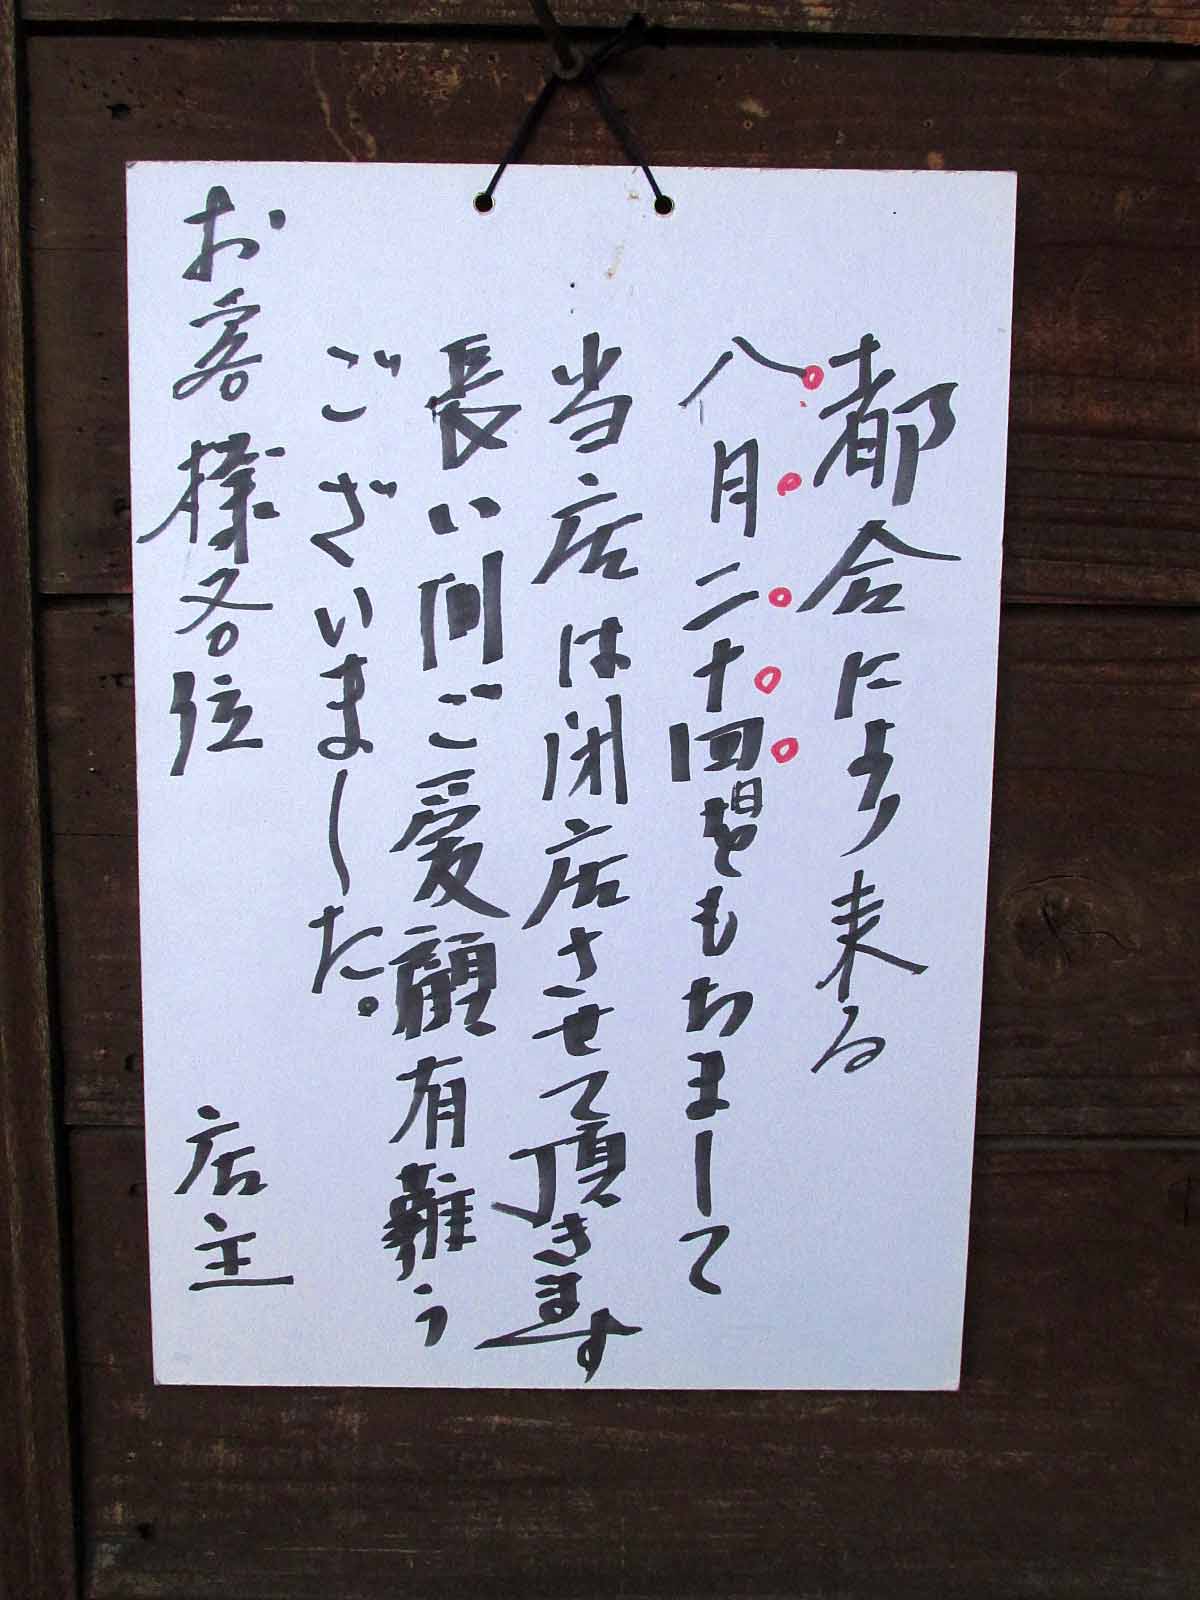 都合により来る
八月二十四日をもちまして
当店は閉店させて頂きます
長い間ご愛顧有難う
ございました。
お客様各位
店主